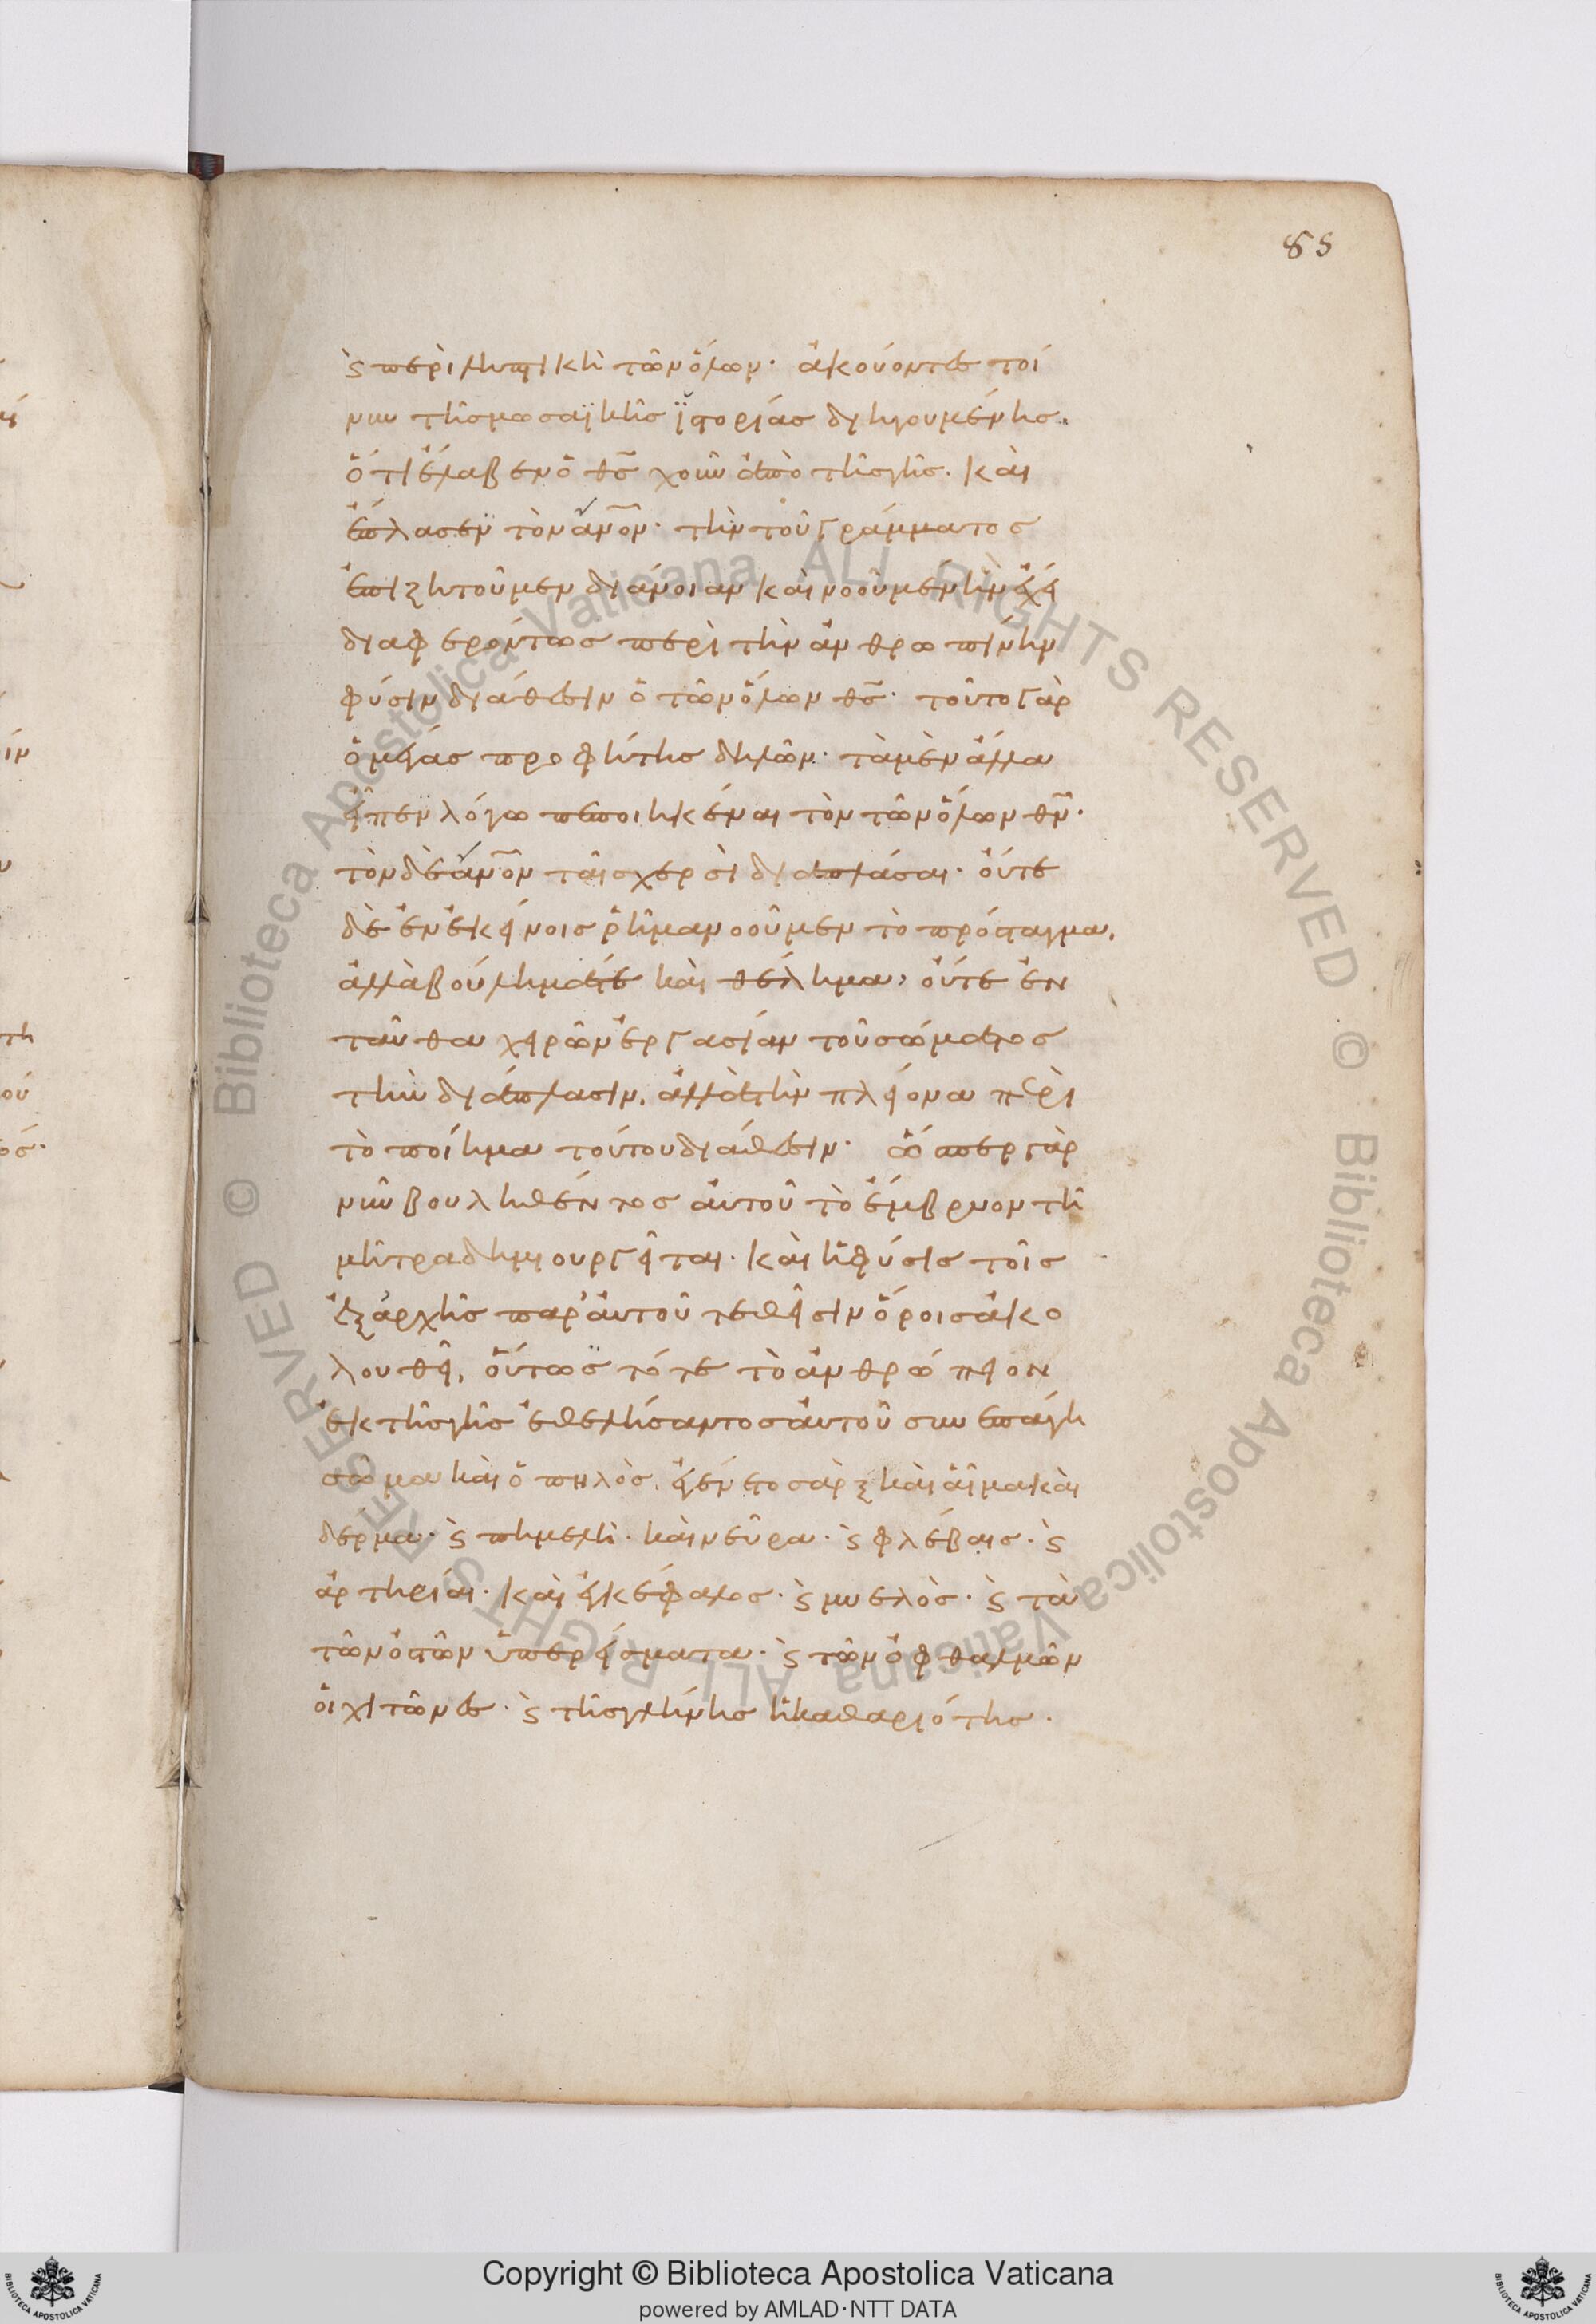 85
ϛ̀ περιληπτικὴ τῶν ὅλων· ἀκούοντες τοί
νυν τῆς μωσαϊκῆς ἱ̈στορίας διηγουμένης.
ὅτι ἔλαβεν ὁ θς̄ χοῦν ἀπὸ τῆς γῆς. καὶ
ἔπλασεν τὸν ἄνον̄· τὴν τοῦ γράμματος
ἐπιζητοῦμεν διάνοιαν καὶ νοοῦμεν ἣν ἔχει
διαφερόντως περὶ τὴν ἀνθρωπίνην
φύσιν διάθεσιν ὁ τῶν ὅλων θς̄· τοῦτο γὰρ
ὁ μέγας προφήτης δηλῶν· τὰ μὲν ἄλλα
εἶπεν λόγω πεποιηκέναι τὸν τῶν ὅλων θν̄·
τὸν δὲ ἄνον̄ ταῖς χερσὶ διαπλάσαι· οὔτε
δὲ ἐν ἐκείνοις ῥῆμα νοοῦμεν τὸ πρόσταγμα,
ἀλλὰ βούλημά τε καὶ θέλημα, οὔτε ἐν
ταῦθα χειρῶν ἐργασίαν τοῦ σώματος
τὴν διάπλασιν, ἀλλὰ τὴν πλείονα περὶ
τὸ ποίημα τούτου διάθεσιν· ὥσπερ γὰρ
νῦν βουληθέντος αὐτοῦ τὸ ἔμβρυον τῆ
μήτρα δημιουργεῖται· καὶ ἡ φύσις τοῖς
ἐξ ἀρχῆς παρ' αὐτοῦ τεθεῖσιν ὅροις ἀκο
λουθεῖ, οὕτως τότε τὸ ἀνθρώπειον
ἐκ τῆς γῆς ἐθελήσαντος αὐτοῦ συνεπάγη
σῶμα καὶ ὁ πηλὸς ἐγένετο σὰρξ καὶ αἷμα καὶ
δέρμα· ϛ̀ πημελὴ· καὶ νεῦρα· ϛ̀ φλέβαις· ϛ̀
ἀρτηρίαι· καὶ ἐγκέφαλος· ϛ̀ μυελὸς· ϛ̀ τὰ
τῶν ὀστῶν ὑπερείσματα· ϛ̀ τῶν ὀφθαλμῶν
οἱ χιτῶνες· ϛ̀ τῆς γλήνης ἡ καθαριότης·
Copyright © Biblioteca Apostolica Vaticana
powered by AMLAD·NTT DATA
© Biblioteca Apostolica Vaticana ALL RIGHTS RESERVED
© Biblioteca Apostolica Vaticana ALL RIGHTS RESERVED